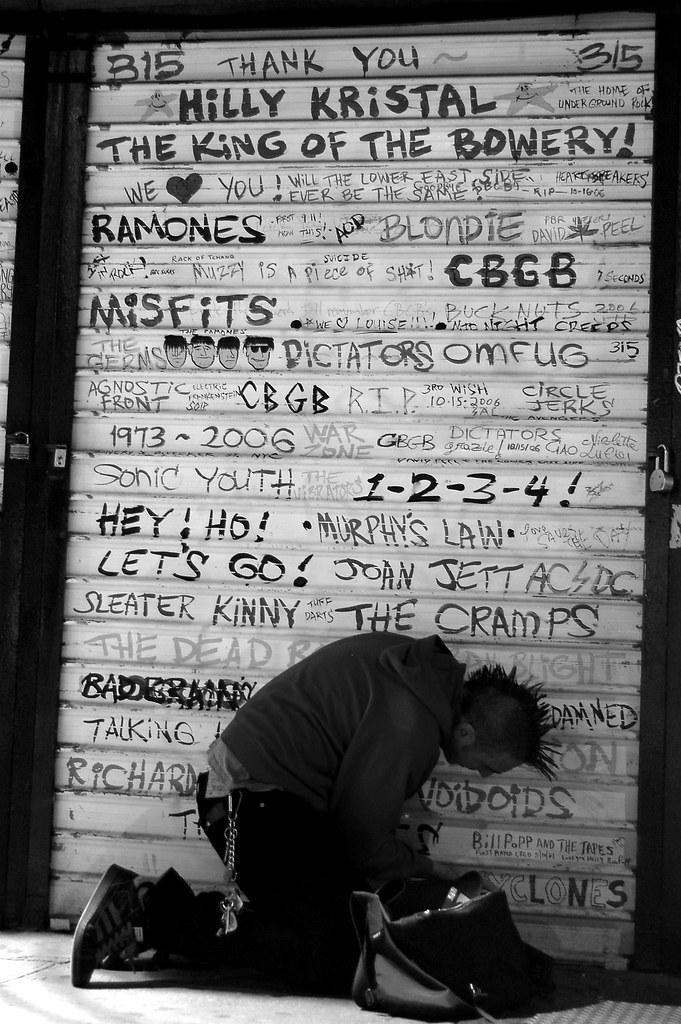 315 THANK YOU ~ 315
HILLY KRISTAL THE HOME OF UNDERGROUND ROCK
THE KING OF THE BOWERY!
WE ♥ YOU! WILL THE LOWER EAST SIDE EVER BE THE SAME? HEARTBREAKERS
R.I.P. 10-15-06
RAMONES AOD BLONDIE DAVID PEEL
SUICIDE
MUZZY IS A PIECE OF SH*T! CBGB 7 SECONDS
MISFITS BUCK NUTS 2006
WE ♡ LOUISE!!! MIDNIGHT CREEPS
THE RAMONES
THE GERMS DICTATORS OMFUG 315
AGNOSTIC FRONT ELECTRIC FRANKENSTEIN CBGB R.I.P. 3RD WISH 10-15-2006 CIRCLE JERKS
THE AVENGERS
1973 ~ 2006 WAR ZONE CBGB DICTATORS 10/15/06 CIAO
SONIC YOUTH THE VIBRATORS 1-2-3-4!
HEY! HO! • MURPHY'S LAW •
LET'S GO! JOAN JETT AC⚡DC
SLEATER KINNY TUFF DARTS THE CRAMPS
THE DEAD BLIGHT
DAMNED
TALKING
RICHARD VOIDOIDS
BILL POPP AND THE TAPES
YCLONES